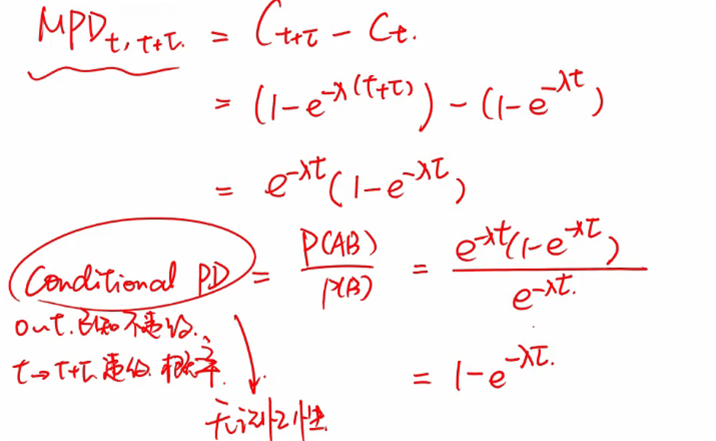 MPD_{t, t+τ} = C_{t+τ} - C_t.
= (1-e^{-λ(t+τ)}) - (1-e^{-λt})
= e^{-λt}(1-e^{-λτ})
Conditional PD = P(AB)/P(B) = e^{-λt}(1-e^{-λτ})/e^{-λt}.
0~t.已知不违约.
t→t+τ.违约.概率. = 1-e^{-λτ}.
无记忆性